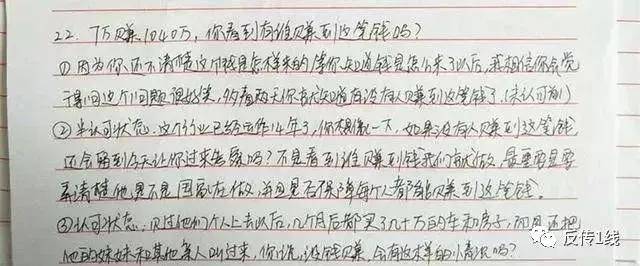 22. 7万赚1040万，你看到有谁赚到这笔钱吗？
①因为你还不清楚这个钱是怎样来的，等你知道钱是怎么来了以后，我相信你会觉
得问这个问题很好笑，多看两天你就知道有没有人赚到这笔钱了。(未认可前)
②半认可状态：这个行业已经运作14年了，你想像一下，如果没有人赚到这笔钱
还会留到今天让你过来考察吗？不是看到谁赚到钱我们就做，最重要是要
弄清楚他是不是国家在做，并且是否保障每个人都能赚到这笔钱。
③认可状态：见过他们个人上去以后，几个月后都买了几十万的车和房子，而且还把
他的妹妹和其他亲人叫过来，你说，没钱赚，会有这样的情况吗？
反传1线